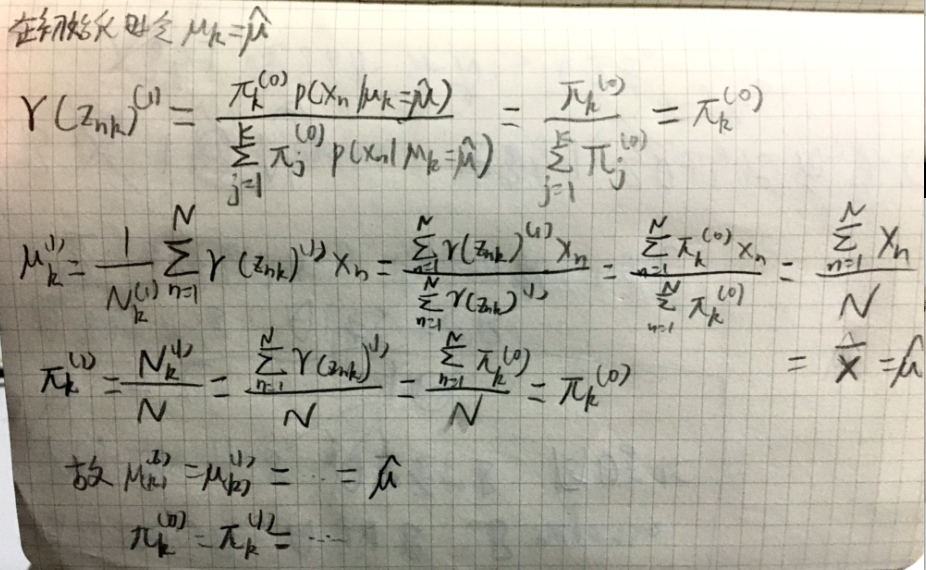 在初始化时令 μ_k = μ̂
γ(z_{nk})^{(1)} = \frac{π_k^{(0)} p(x_n|μ_k=μ̂)}{\sum_{j=1}^{K} π_j^{(0)} p(x_n|μ_k=μ̂)} = \frac{π_k^{(0)}}{\sum_{j=1}^{K} π_j^{(0)}} = π_k^{(0)}
μ_k^{(1)} = \frac{1}{N_k^{(1)}} \sum_{n=1}^{N} γ(z_{nk})^{(1)} x_n = \frac{\sum_{n=1}^{N} γ(z_{nk})^{(1)} x_n}{\sum_{n=1}^{N} γ(z_{nk})^{(1)}} = \frac{\sum_{n=1}^{N} π_k^{(0)} x_n}{\sum_{n=1}^{N} π_k^{(0)}} = \frac{\sum_{n=1}^{N} x_n}{N}
= \bar{x} = μ̂
π_k^{(1)} = \frac{N_k^{(1)}}{N} = \frac{\sum_{n=1}^{N} γ(z_{nk})^{(1)}}{N} = \frac{\sum_{n=1}^{N} π_k^{(0)}}{N} = π_k^{(0)}
故 = = … = μ̂
π_k^{(0)} = π_k^{(1)} = …